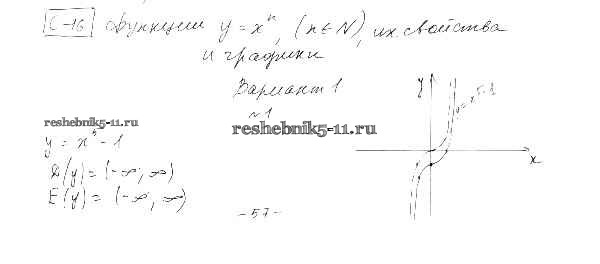 С-16 Функции y = xⁿ, (n ∈ N), их свойства
и графики
Вариант 1
№1
reshebnik5-11.ru
reshebnik5-11.ru
y = x⁵ - 1
D(y) = (-∞; ∞)
E(y) = (-∞; ∞)
y
y = x⁵-1
x
-57-